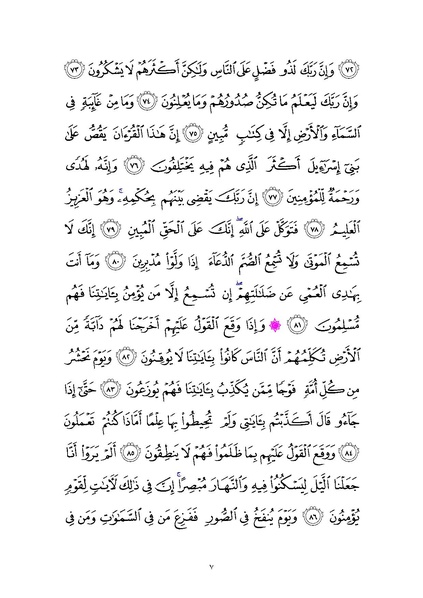 ﴿٧٢﴾ وَإِنَّ رَبَّكَ لَذُو فَضْلٍ عَلَى ٱلنَّاسِ وَلَٰكِنَّ أَكْثَرَهُمْ لَا يَشْكُرُونَ ﴿٧٣﴾
وَإِنَّ رَبَّكَ لَيَعْلَمُ مَا تُكِنُّ صُدُورُهُمْ وَمَا يُعْلِنُونَ ﴿٧٤﴾ وَمَا مِنْ غَآئِبَةٍ فِى
ٱلسَّمَآءِ وَٱلْأَرْضِ إِلَّا فِى كِتَٰبٍ مُّبِينٍ ﴿٧٥﴾ إِنَّ هَٰذَا ٱلْقُرْءَانَ يَقُصُّ عَلَىٰ
بَنِىٓ إِسْرَٰٓءِيلَ أَكْثَرَ ٱلَّذِى هُمْ فِيهِ يَخْتَلِفُونَ ﴿٧٦﴾ وَإِنَّهُۥ لَهُدًى
وَرَحْمَةٌ لِّلْمُؤْمِنِينَ ﴿٧٧﴾ إِنَّ رَبَّكَ يَقْضِى بَيْنَهُم بِحُكْمِهِۦ ۚ وَهُوَ ٱلْعَزِيزُ
ٱلْعَلِيمُ ﴿٧٨﴾ فَتَوَكَّلْ عَلَى ٱللَّهِ ۖ إِنَّكَ عَلَى ٱلْحَقِّ ٱلْمُبِينِ ﴿٧٩﴾ إِنَّكَ لَا
تُسْمِعُ ٱلْمَوْتَىٰ وَلَا تُسْمِعُ ٱلصُّمَّ ٱلدُّعَآءَ إِذَا وَلَّوْا۟ مُدْبِرِينَ ﴿٨٠﴾ وَمَآ أَنتَ
بِهَٰدِى ٱلْعُمْىِ عَن ضَلَٰلَتِهِمْ ۖ إِن تُسْمِعُ إِلَّا مَن يُؤْمِنُ بِـَٔايَٰتِنَا فَهُم
مُّسْلِمُونَ ﴿٨١﴾ ۞ وَإِذَا وَقَعَ ٱلْقَوْلُ عَلَيْهِمْ أَخْرَجْنَا لَهُمْ دَآبَّةً مِّنَ
ٱلْأَرْضِ تُكَلِّمُهُمْ أَنَّ ٱلنَّاسَ كَانُوا۟ بِـَٔايَٰتِنَا لَا يُوقِنُونَ ﴿٨٢﴾ وَيَوْمَ نَحْشُرُ
مِن كُلِّ أُمَّةٍ فَوْجًا مِّمَّن يُكَذِّبُ بِـَٔايَٰتِنَا فَهُمْ يُوزَعُونَ ﴿٨٣﴾ حَتَّىٰٓ إِذَا
جَآءُو قَالَ أَكَذَّبْتُم بِـَٔايَٰتِى وَلَمْ تُحِيطُوا۟ بِهَا عِلْمًا أَمَّاذَا كُنتُمْ تَعْمَلُونَ
﴿٨٤﴾ وَوَقَعَ ٱلْقَوْلُ عَلَيْهِم بِمَا ظَلَمُوا۟ فَهُمْ لَا يَنطِقُونَ ﴿٨٥﴾ أَلَمْ يَرَوْا۟ أَنَّا
جَعَلْنَا ٱلَّيْلَ لِيَسْكُنُوا۟ فِيهِ وَٱلنَّهَارَ مُبْصِرًا ۚ إِنَّ فِى ذَٰلِكَ لَـَٔايَٰتٍ لِّقَوْمٍ
يُؤْمِنُونَ ﴿٨٦﴾ وَيَوْمَ يُنفَخُ فِى ٱلصُّورِ فَفَزِعَ مَن فِى ٱلسَّمَٰوَٰتِ وَمَن فِى
٧